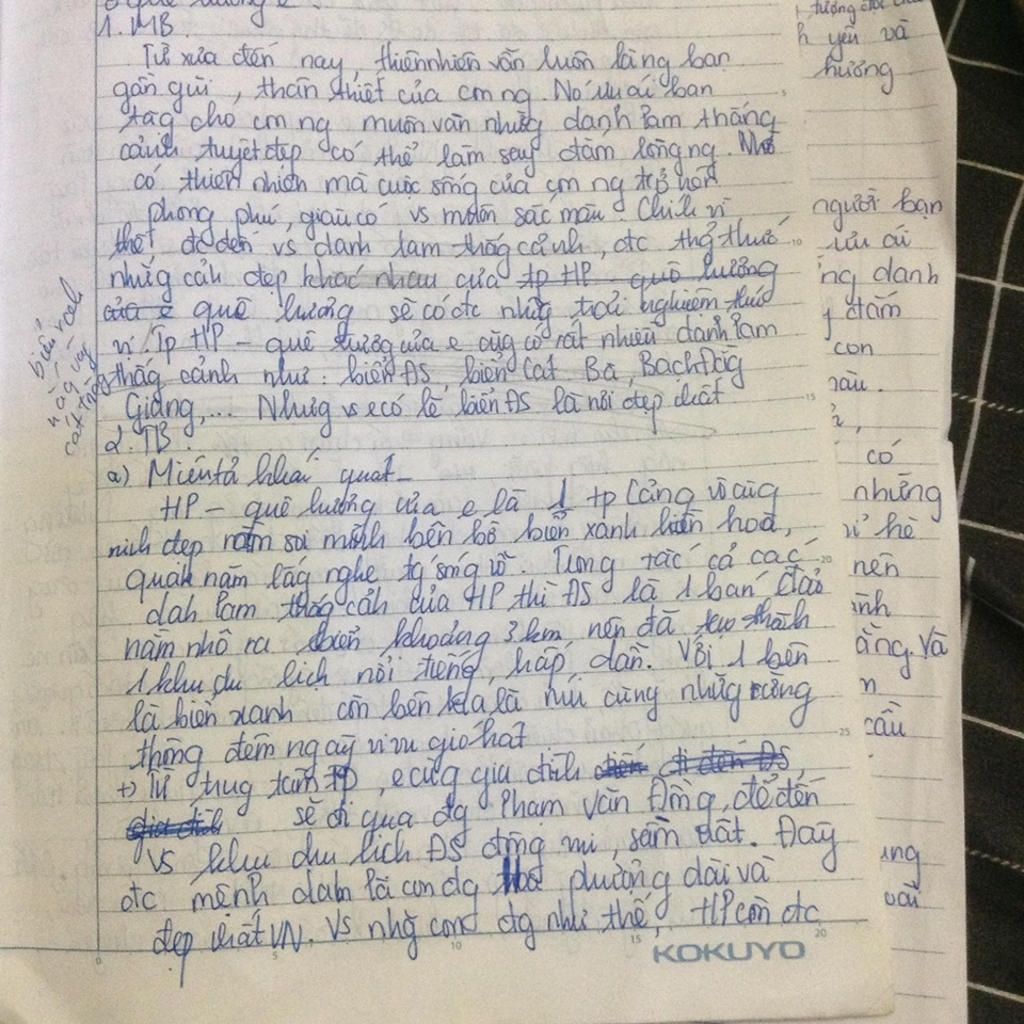 1. MB.
Từ xưa đến nay, thiên nhiên vẫn luôn là ng bạn
gần gũi, thân thiết của cm ng. Nó ưu ái ban
tặg cho cm ng muôn vàn những danh lam thắng
cảnh tuyệt đẹp có thể làm say đắm lòng ng. Nhờ
có thiên nhiên mà cuộc sống của cm ng trở nên
phong phú, giàu có vs muôn sắc màu. Chính vì
thế, đc đến vs danh lam thắg cảnh, đc thg thức
nhữg cảh đẹp khác nhau của tp HP - quê hương
của e quê hương sẽ có đc nhữg trải nghiệm thú
vị. Tp HP - quê hươg của e cũg có rất nhiều danh lam
thắg cảnh như: biển ĐS, biển Cát Bà, Bạch Đằg
Giang,... Nhưg vs e có lẽ biển ĐS là nơi đẹp nhất
2. TB.
a) Miêu tả khái quát
HP - quê hương của e là 1 tp Cảng vô cùg
nih đẹp nằm soi mình bên bờ biển xanh hiền hoà,
quah năm lắg nghe tg sóng vỗ. Trong tất cả các
dah lam thắg cảh của HP thì ĐS là 1 bán đảo
nằm nhô ra biển khoảng 3 km, nên đã tạo thàh
1 khu du lịch nổi tiếng, hấp dẫn. Với 1 bên
là biển xanh còn bên kia là núi cùng nhữg rừng
thông đêm ngày vi vu gió hát
+) Từ trug tâm TP, e cùg gia đìh đến đi đến ĐS,
gia đìh sẽ đi qua đg Phạm Văn Đồng, để đến
vs khu du lịch ĐS động mi, sầm uất. Đây
đc mệnh dah là con đg hoa phượng dài và
đẹp nhất VN. Vs nhg con đg như thế, HP còn đc
KOKUYO
biển
cát
h yên và
hương
người bạn
ưu ái
ng danh
đắm
con
màu.
có
những
hè
nên
ành
ằng. Và
cầu
ung